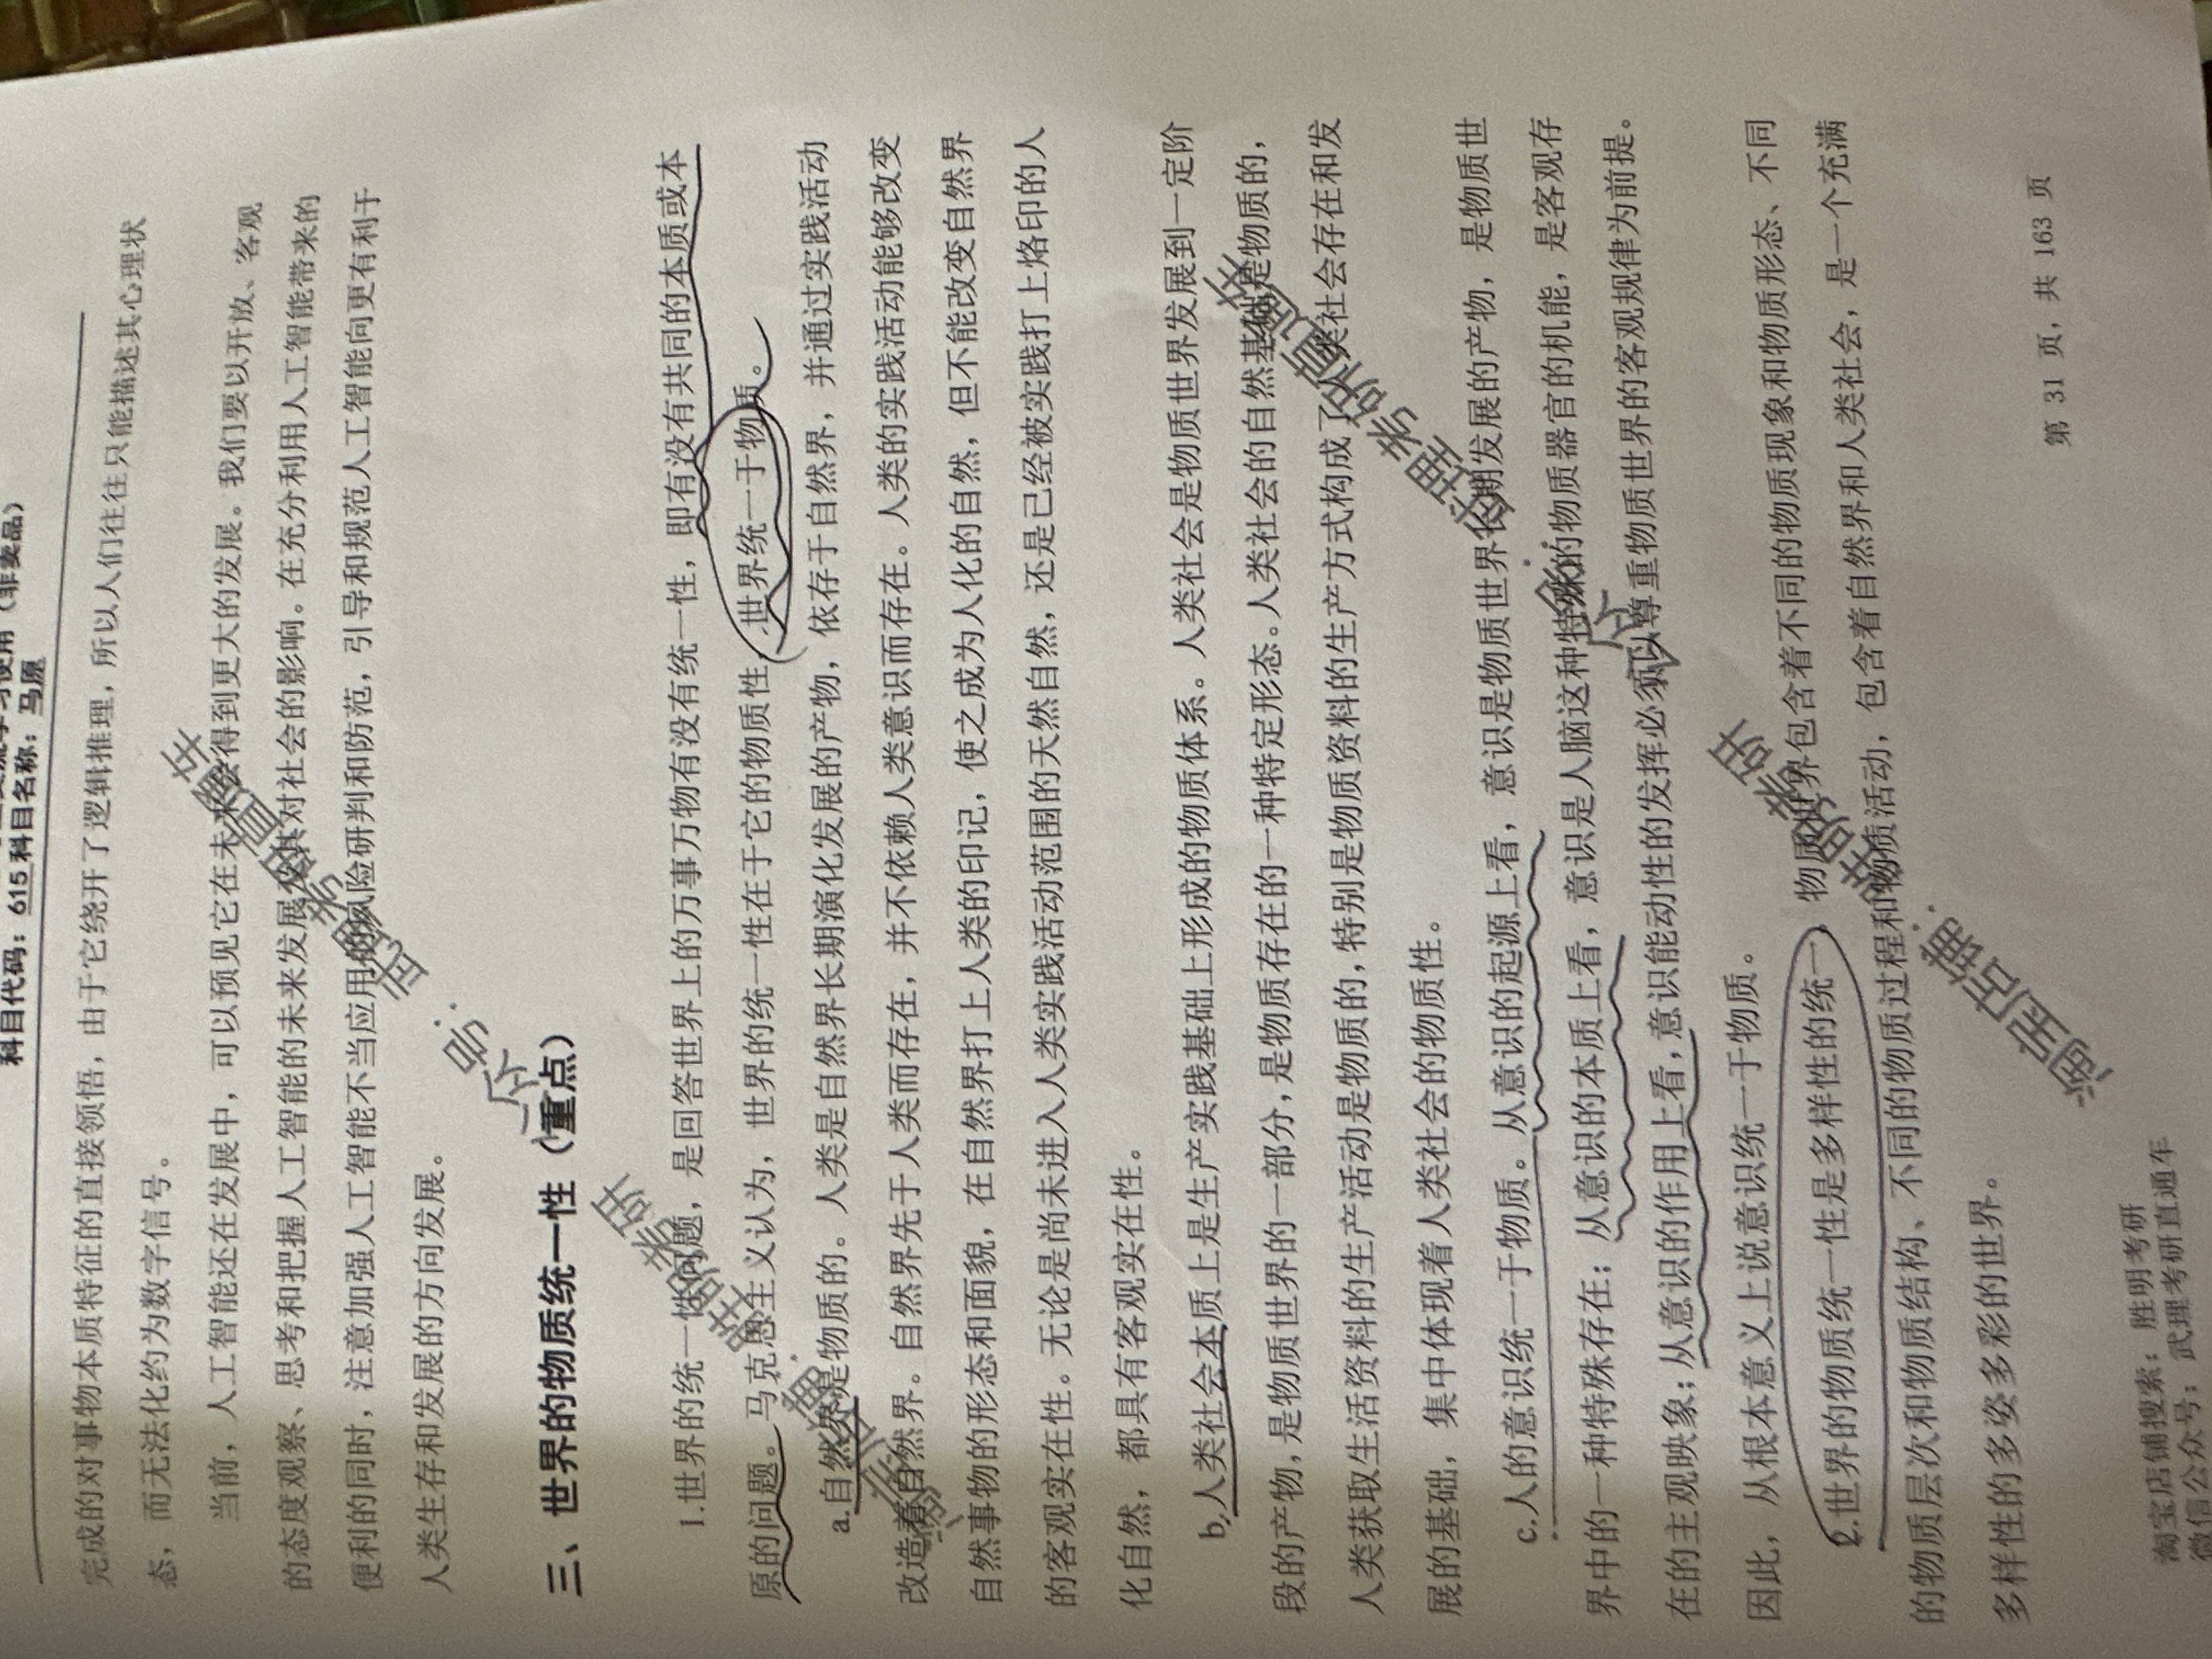 科目代码：615 科目名称：马原
完成的对事物本质特征的直接领悟，由于它绕开了逻辑推理，所以人们往往只能描述其心理状
态，而无法化约为数字信号。
当前，人工智能还在发展中，可以预见它在未来会得到更大的发展。我们要以开放、客观
的态度观察、思考和把握人工智能的未来发展及其对社会的影响。在充分利用人工智能带来的
便利的同时，注意加强人工智能不当应用的风险研判和防范，引导和规范人工智能向更有利于
人类生存和发展的方向发展。
三、世界的物质统一性（重点）
1.世界的统一性问题，是回答世界上的万事万物有没有统一性，即有没有共同的本质或本
原的问题。马克思主义认为，世界的统一性在于它的物质性，世界统一于物质。
a.自然界是物质的。人类是自然界长期演化发展的产物，依存于自然界，并通过实践活动
改造着自然界。自然界先于人类而存在，并不依赖人类意识而存在。人类的实践活动能够改变
自然事物的形态和面貌，在自然界打上人类的印记，使之成为人化的自然，但不能改变自然界
的客观实在性。无论是尚未进入人类实践活动范围的天然自然，还是已经被实践打上烙印的人
化自然，都具有客观实在性。
b.人类社会本质上是生产实践基础上形成的物质体系。人类社会是物质世界发展到一定阶
段的产物，是物质世界的一部分，是物质存在的一种特定形态。人类社会的自然基础是物质的，
人类获取生活资料的生产活动是物质的，特别是物质资料的生产方式构成了人类社会存在和发
展的基础，集中体现着人类社会的物质性。
c.人的意识统一于物质。从意识的起源上看，意识是物质世界长期发展的产物，是物质世
界中的一种特殊存在；从意识的本质上看，意识是人脑这种特殊的物质器官的机能，是客观存
在的主观映象；从意识的作用上看，意识能动性的发挥必须以尊重物质世界的客观规律为前提。
因此，从根本意义上说意识统一于物质。
2.世界的物质统一性是多样性的统一，物质世界包含着不同的物质现象和物质形态、不同
的物质层次和物质结构、不同的物质过程和物质活动，包含着自然界和人类社会，是一个充满
多样性的多姿多彩的世界。
淘宝店铺搜索：胜明考研
微信公众号：武理考研直通车
第 31 页，共 163 页